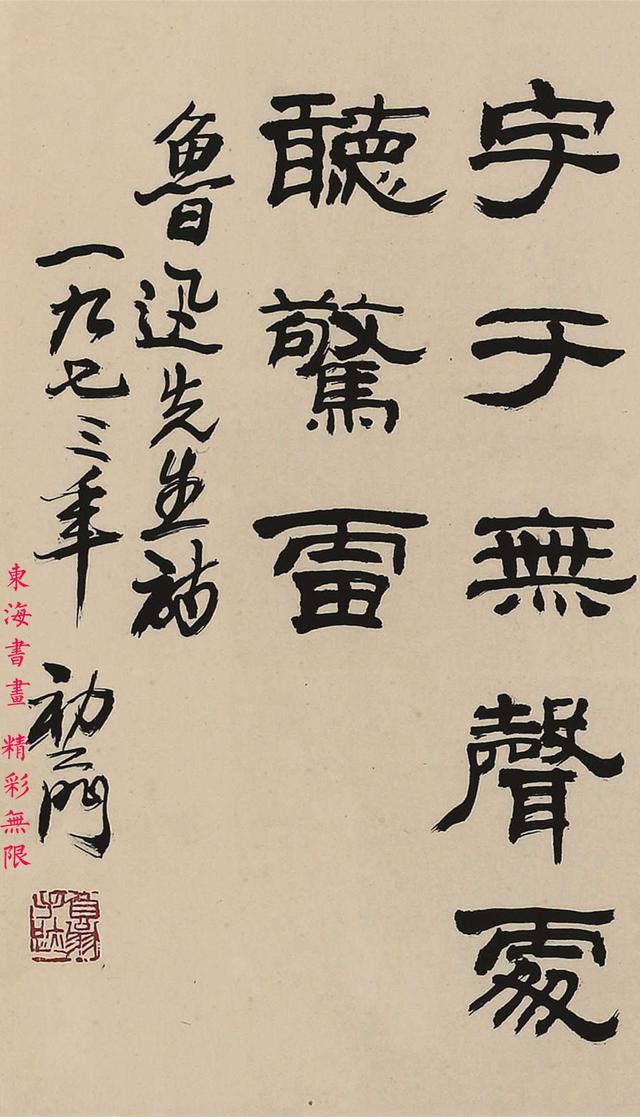 宇于無聲處
聽驚雷
魯迅先生詩
一九七三年
東海書畫 精彩無限